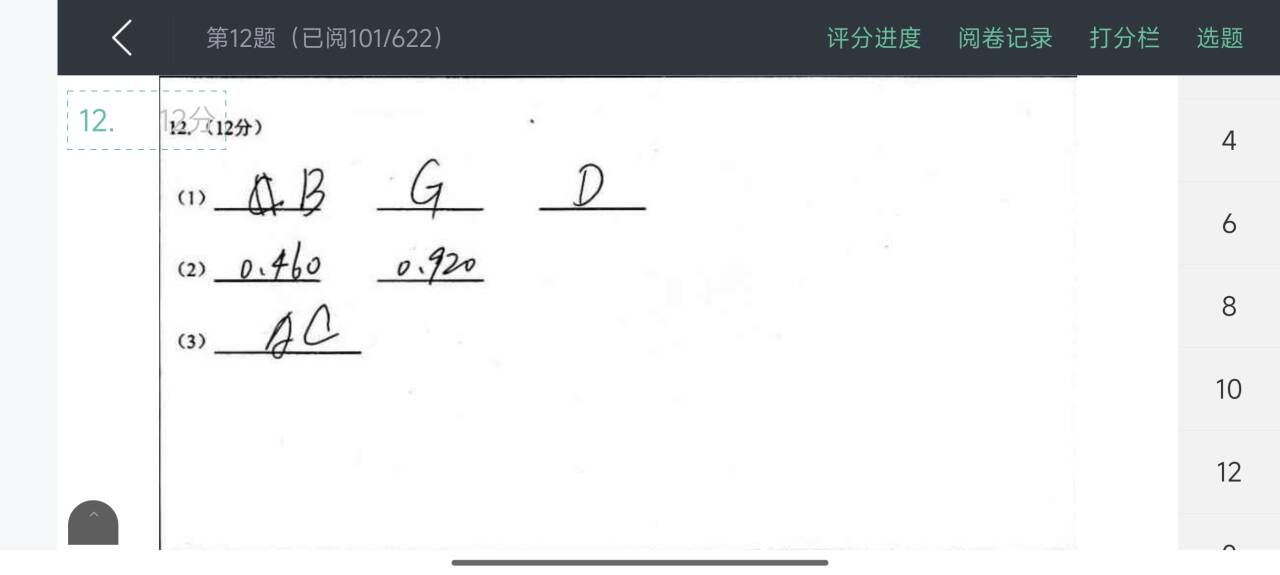 第12题（已阅101/622）
评分进度 阅卷记录 打分栏 选题
12. 12分
12.（12分）
(1) B G D
(2) 0.460 0.920
(3) AC
4
6
8
10
12